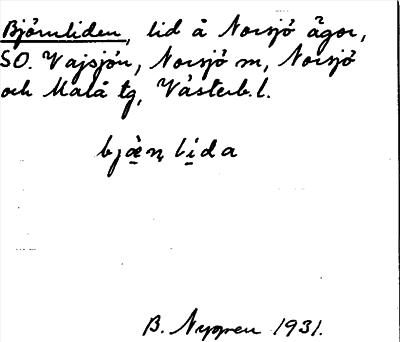 Björnliden, lid å Norsjö ägor,
SO. Vajsjön, Norsjö sn, Norsjö
och Malå tg, Västerb. l.
bjæ̀ṇlìda
B. Nygren 1931.